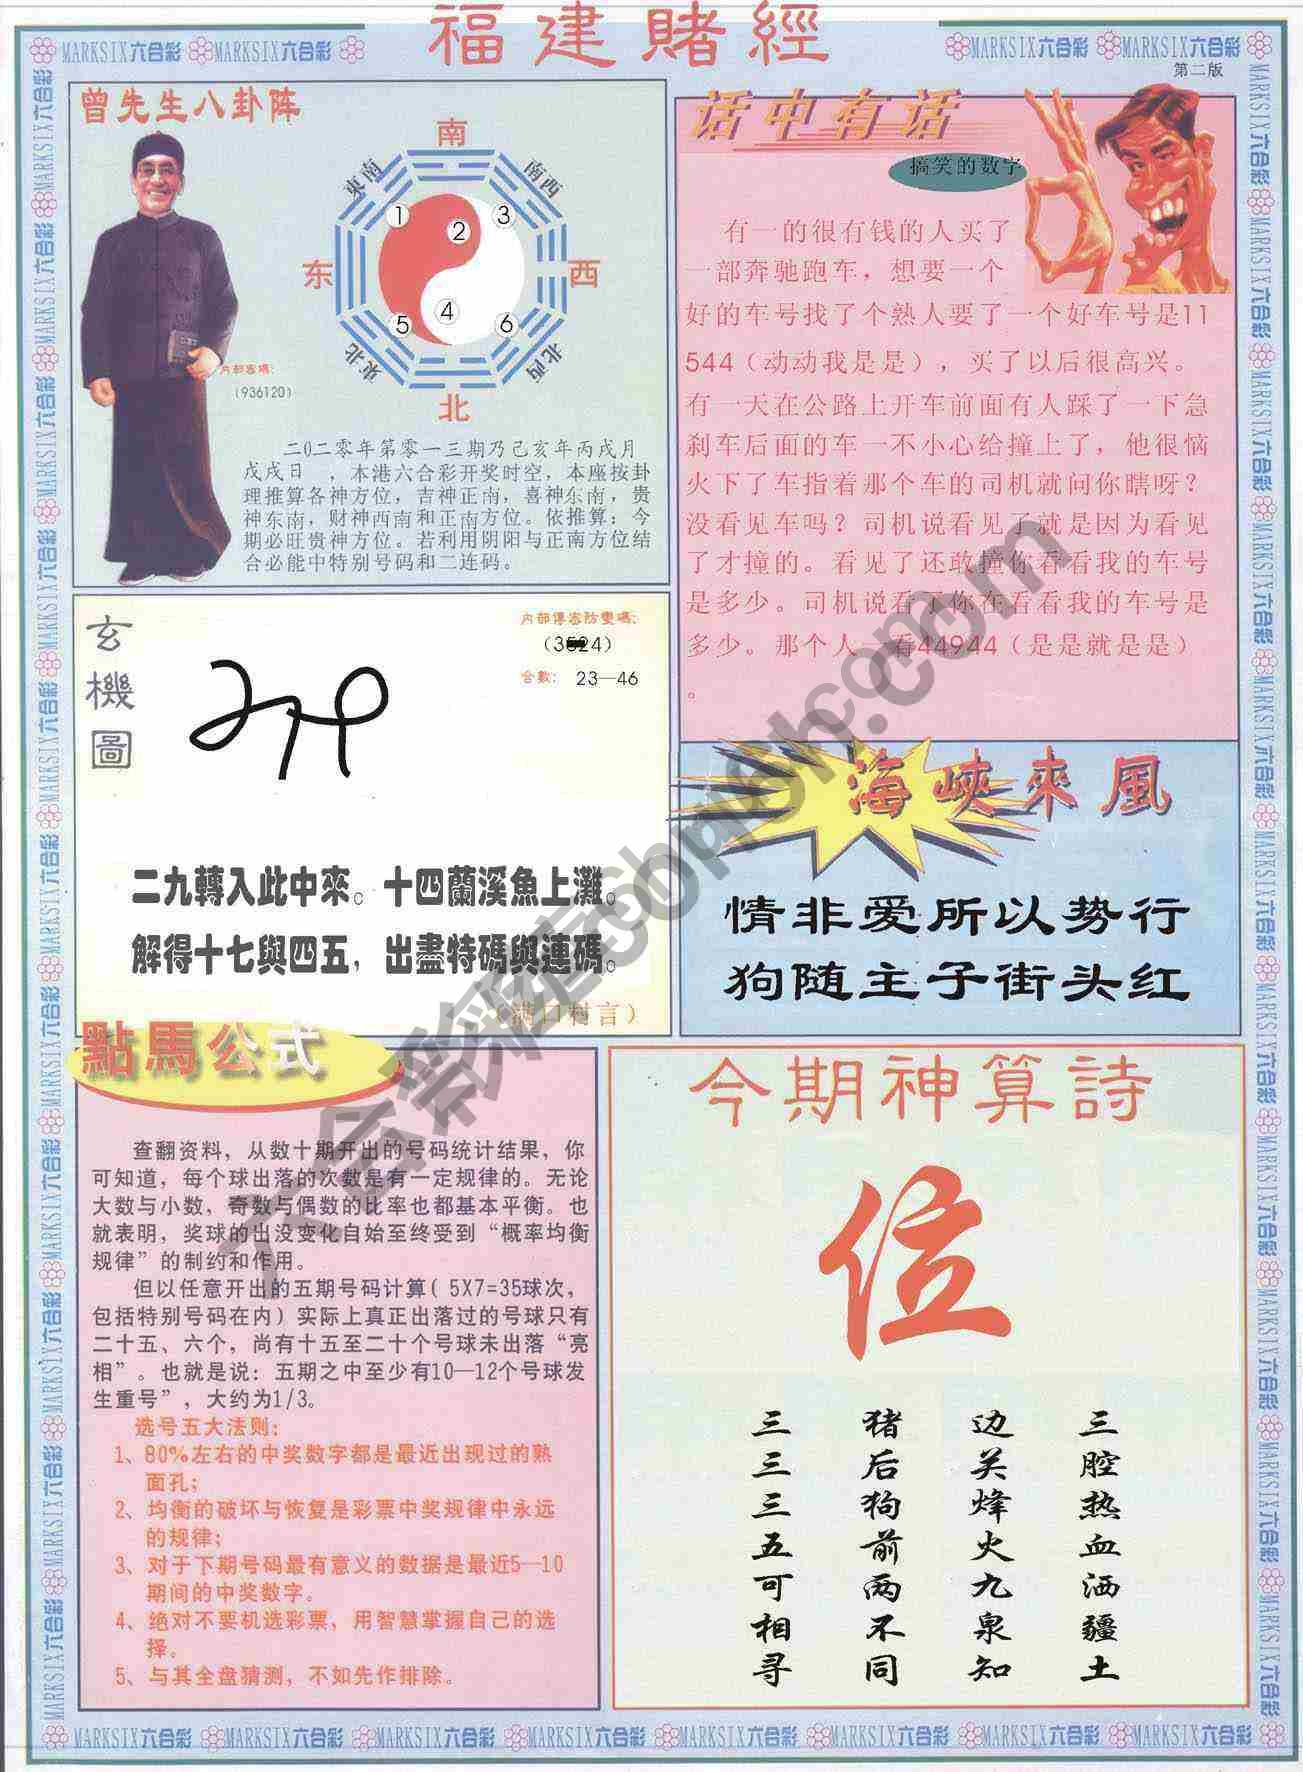 福建賭經
第二版
曾先生八卦阵
南
東南
南西
1
2
3
东
西
4
5
6
東北
北西
北
内部密碼:
(936120)
二0二零年第零一三期乃己亥年丙戌月
戊戌日 ,本港六合彩开奖时空,本座按卦
理推算各神方位,吉神正南,喜神东南,贵
神东南,财神西南和正南方位。依推算:今
期必旺贵神方位。若利用阴阳与正南方位结
合必能中特别号码和二连码。
话中有话
搞笑的数字
有一的很有钱的人买了
一部奔驰跑车,想要一个
好的车号找了个熟人要了一个好车号是11
544(动动我是是),买了以后很高兴。
有一天在公路上开车前面有人踩了一下急
刹车后面的车一不小心给撞上了,他很恼
火下了车指着那个车的司机就问你瞎呀?
没看见车吗?司机说看见了就是因为看见
了才撞的。看见了还敢撞你看看我的车号
是多少。司机说看了你在看看我的车号是
多少。那个人一看44944(是是就是是)
。
玄機圖
内部傳密防變碼:
合數: 23—46
二九轉入此中來。十四蘭溪魚上灘。
解得十七與四五,出盡特碼與連碼。
(满口村言)
海峡來風
情非爱所以势行
狗随主子街头红
點馬公式
查翻资料,从数十期开出的号码统计结果,你
可知道,每个球出落的次数是有一定规律的。无论
大数与小数,奇数与偶数的比率也都基本平衡。也
就表明,奖球的出没变化自始至终受到“概率均衡
规律”的制约和作用。
但以任意开出的五期号码计算( 5X7=35球次,
包括特别号码在内)实际上真正出落过的号球只有
二十五、六个,尚有十五至二十个号球未出落“亮
相”。也就是说:五期之中至少有10—12个号球发
生重号”,大约为1/3。
选号五大法则:
1、80%左右的中奖数字都是最近出现过的熟
面孔;
2、均衡的破坏与恢复是彩票中奖规律中永远
的规律;
3、对于下期号码最有意义的数据是最近5—10
期间的中奖数字。
4、绝对不要机选彩票,用智慧掌握自己的选
择。
5、与其全盘猜测,不如先作排除。
今期神算詩
位
三腔热血洒疆土
边关烽火九泉知
猪后狗前两不同
三三三五可相寻
MARKSIX六合彩